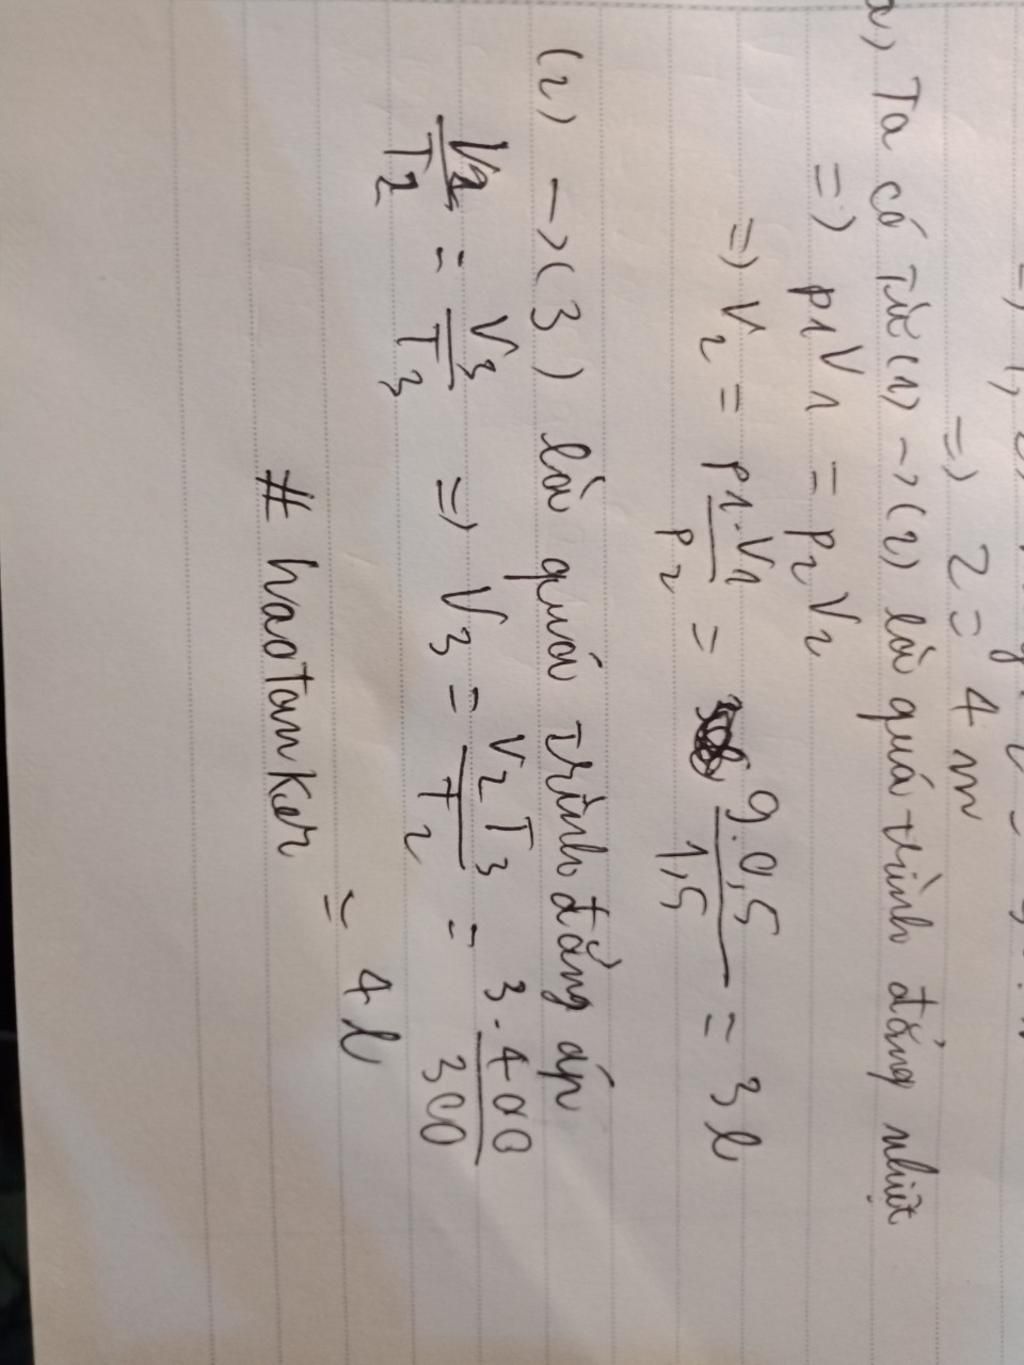 =) z = 4 m
a) Ta có từ (1) -> (2) là quá trình đẳng nhiệt
=) p1V1 = p2V2
=) V2 = p1.V1/p2 = 9.0,5/1,5 = 3l
(2) -> (3) là quá trình đẳng áp
V2/T2 = V3/T3 =) V3 = V2T3/T2 = 3.400/300
= 4l
# haotanker